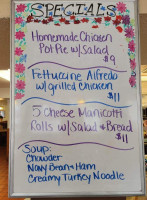 SPECIALS
Homemade Chicken
Pot Pie w/ Salad
$9
Fettuccine Alfredo
w/ grilled Chicken
$11
3 Cheese Manicotti
Rolls w/ Salad & Bread
$11
Soup:
Chowder
Navy Bean & Ham
Creamy Turkey Noodle